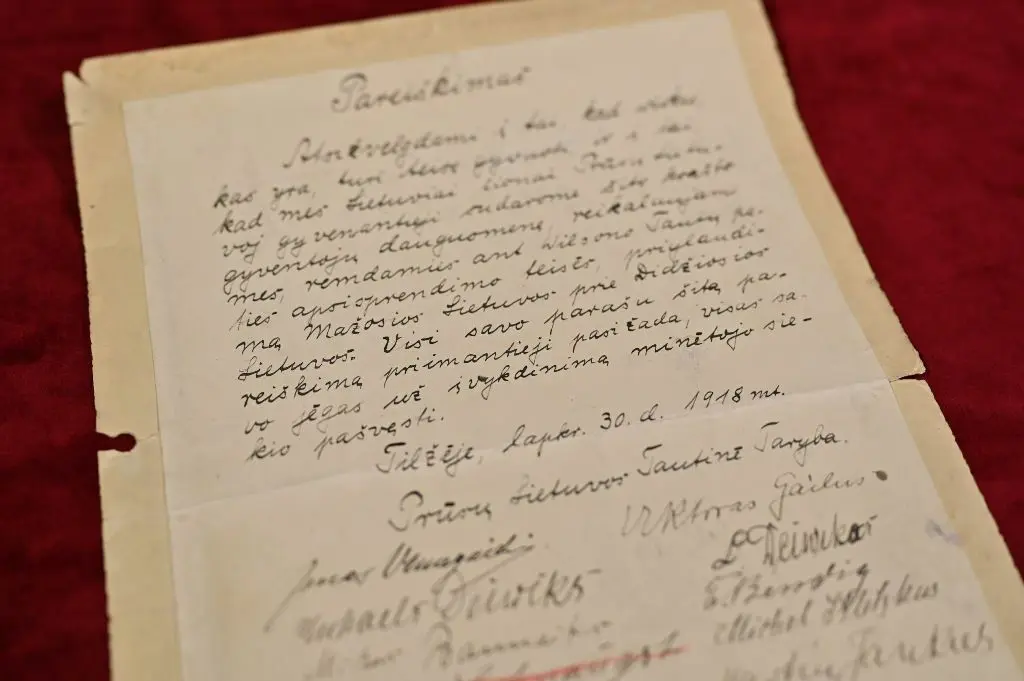 Pareiškimas
Atsižvelgdami į tai, kad viskas
kas yra, turi teisę gyvuoti, ir į tai
kad mes Lietuviai čionai Prūsų Lietu-
voj gyvenantieji sudarome šito krašto
gyventojų dauguomenę, reikalaujam
mes, remdamies ant Wilsono Tautų pa-
ties apsisprendimo teisės, priglaudi-
mą Mažosios Lietuvos prie Didžiosios
Lietuvos. Visi savo parašu šitą pa-
reiškimą priimantieji pasižada, visas sa-
vo jėgas už įvykdinimą minėtojo sie-
kio pašvęsti.
Tilžėje, lapkr. 30. d. 1918 mt.
Prūsų Lietuvos Tautinė Taryba.
Viktoras Gailus
Jonas Vanagaitis
L Deiwikas
Mikaels Deiwiks
E. Bendig
Michel
Martin Jankus